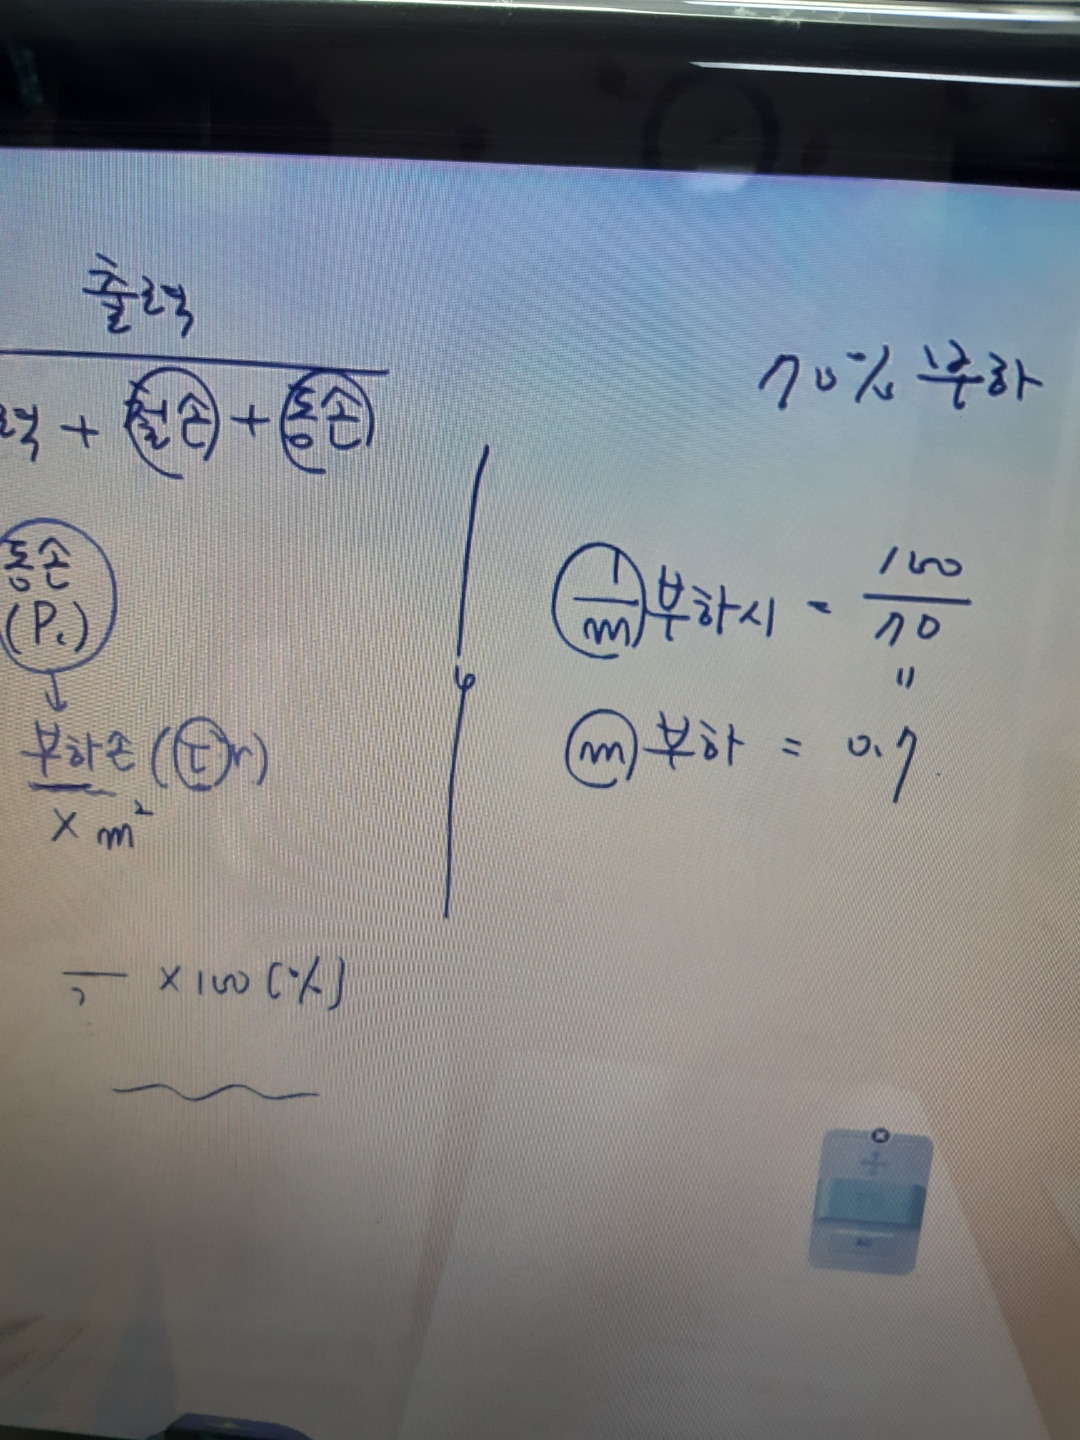 출력
력 + 철손 + 동손
동손
(P.)
↓
부하손 (t r)
× m²
× 100 (%)
70% 부하
1/m 부하시 = 100/70
"
m 부하 = 0.7